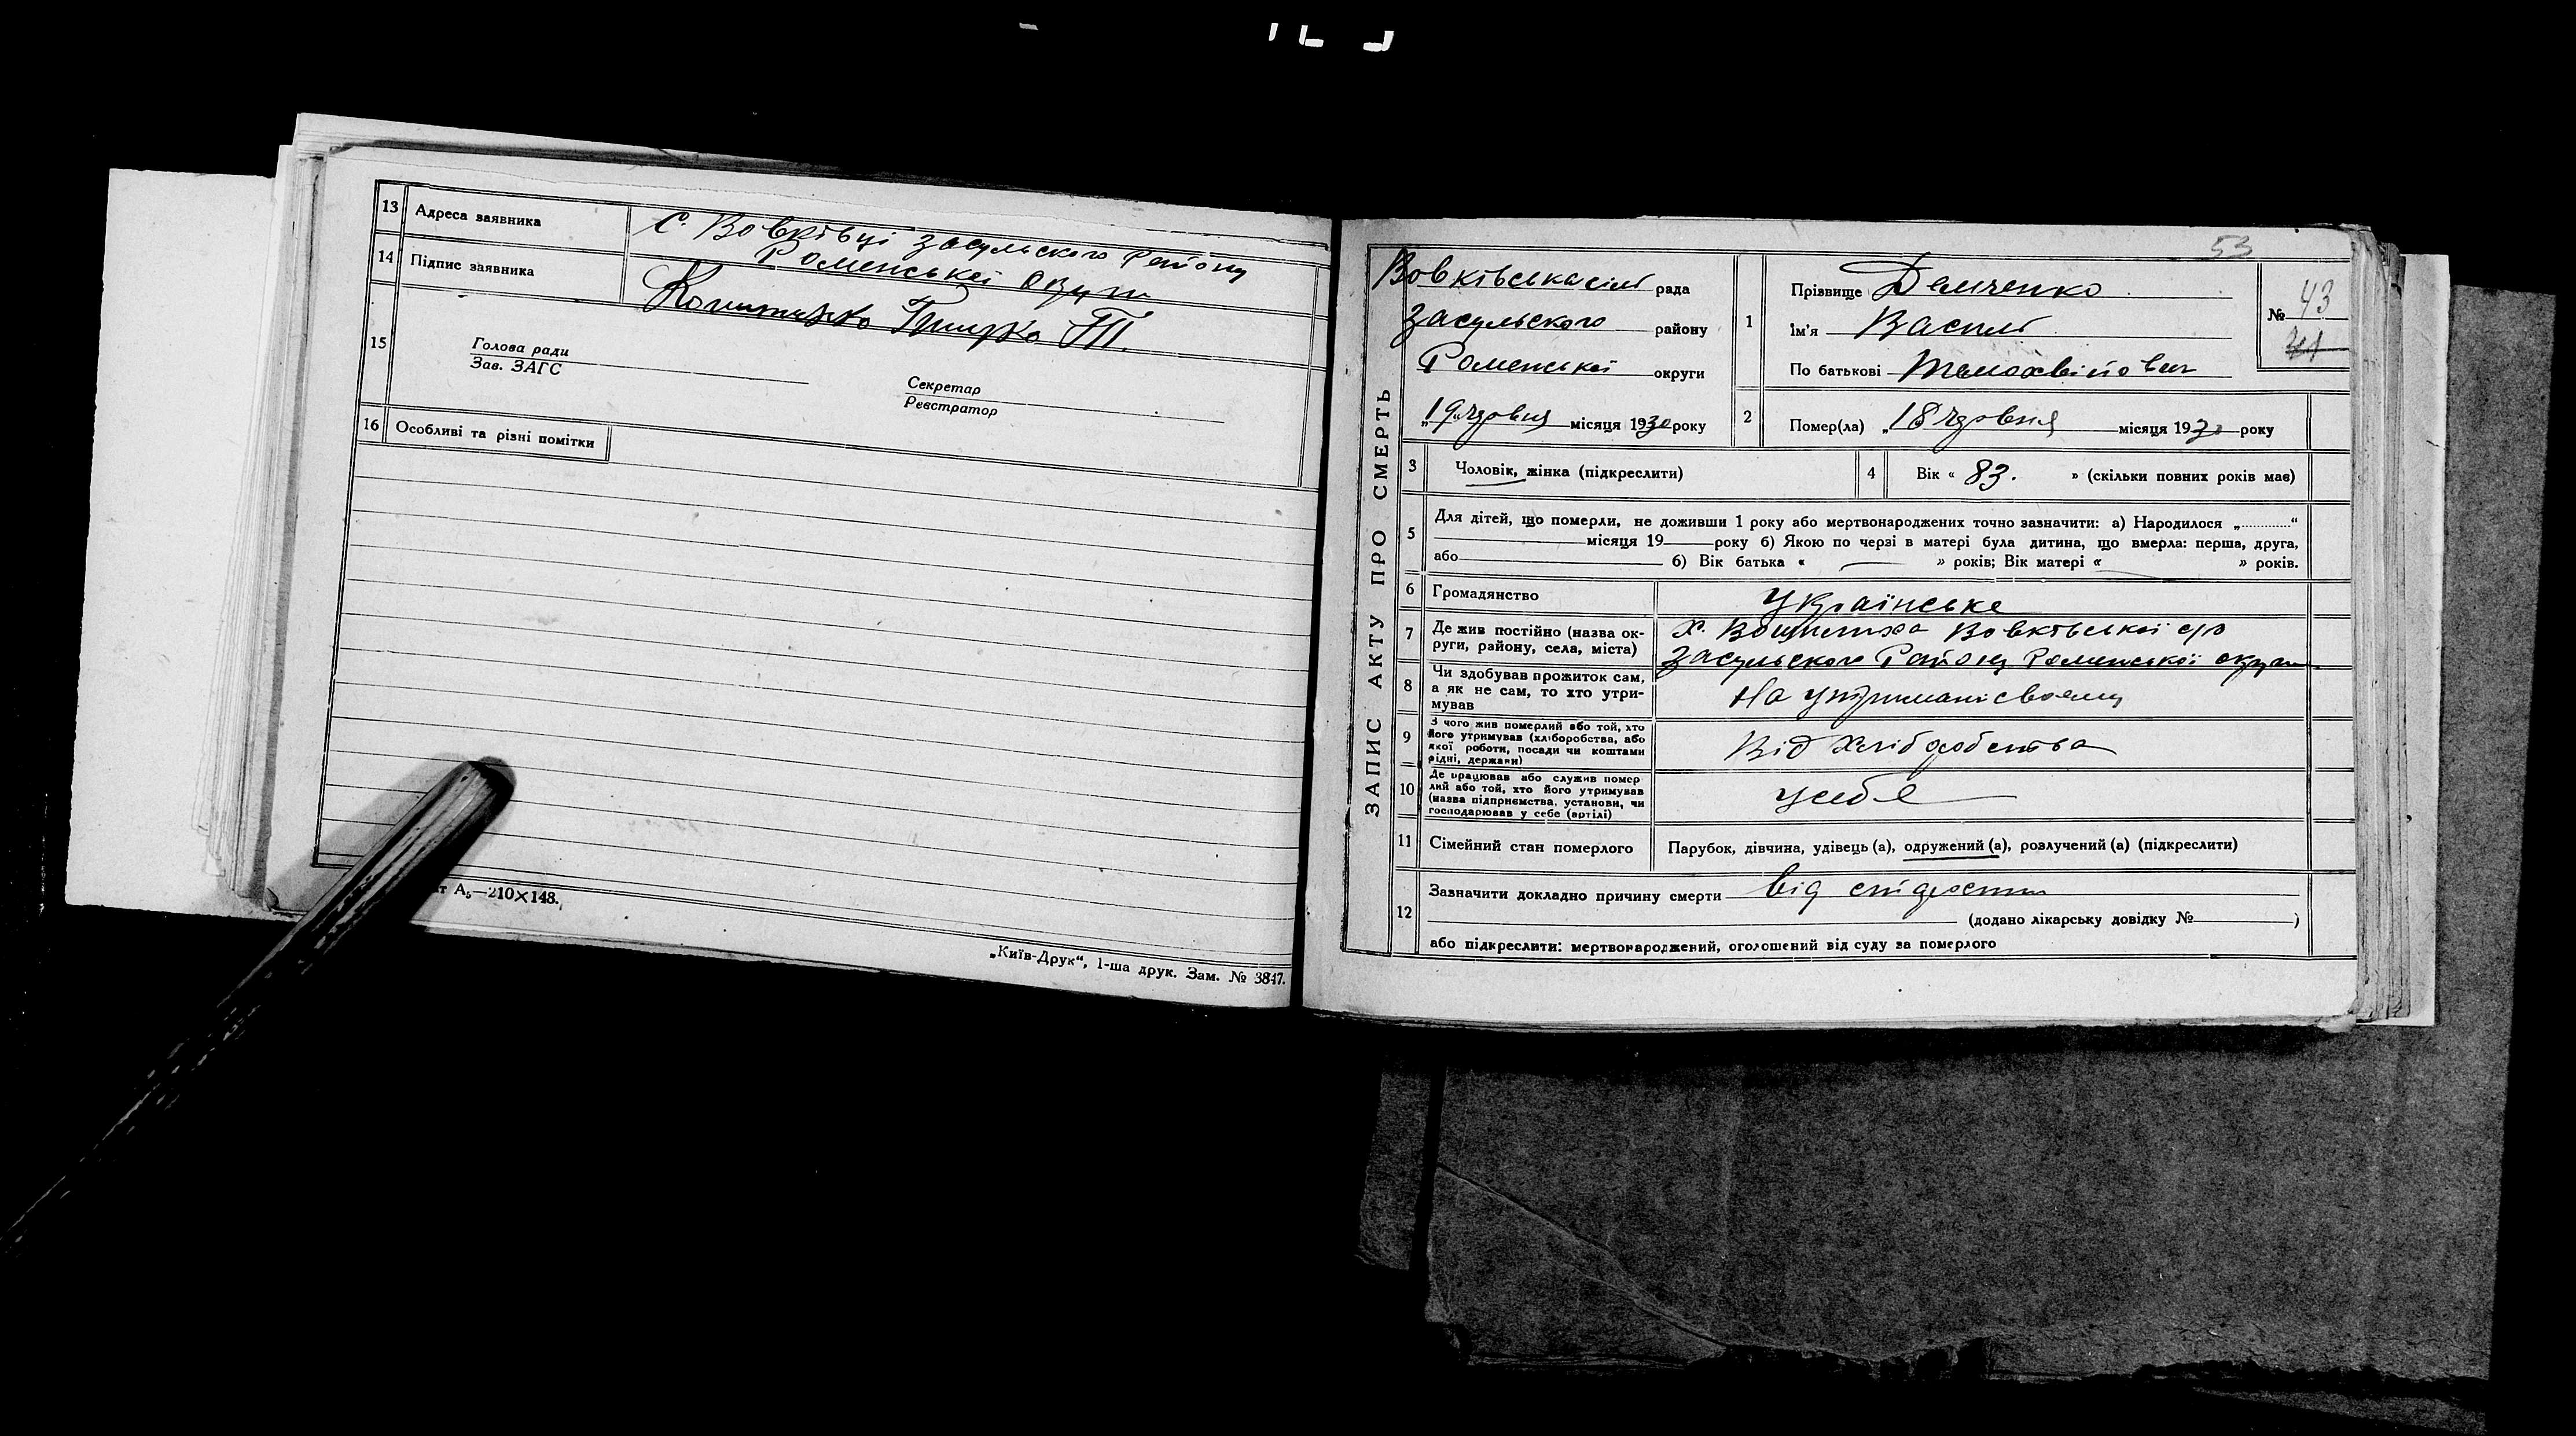 13 Адреса заявника С. Вовківці Засульського Району
Роменської Округи
14 Підпис заявника
15
Голова ради
Зав. ЗАГС
Секретар
Реєстратор
16 Особливі та різні помітки
А₅—210×148.
„Київ-Друк“, 1-ша друк. Зам. № 3847.
53
ЗАПИС АКТУ ПРО СМЕРТЬ
Вовківська сіль рада
Засульського району
Роменської округи
„19 червня місяця 1930 року
1
Прізвище Демченко
Ім'я Василь
По батькові
№ 43
2 Помер(ла) „18 червня місяця 1930 року
3 Чоловік, жінка (підкреслити)
4 Вік « 83. » (скільки повних років має)
5 Для дітей, що померли, не доживши 1 року або мертвонароджених точно зазначити: а) Народилося „............“
місяця 19 року б) Якою по черзі в матері була дитина, що вмерла: перша, друга,
або б) Вік батька « » років; Вік матері « » років.
6 Громадянство Українське
7 Де жив постійно (назва ок-
руги, району, села, міста)
Х. Вовківської с/р
Засульського Району Роменської округи
8 Чи здобував прожиток сам,
а як не сам, то хто утри-
мував
На утримані своему
9 З чого жив померлий або той, хто
його утримував (хліборобства, або
якої роботи, посади чи коштами
рідні, держави)
Від хліборобства
10 Де працював або служив помер
лий або той, хто його утримував
(назва підприємства, установи, чи
господарював у себе (артілі)
у себе
11 Сімейний стан померлого Парубок, дівчина, удівець (а), одружений (а), розлучений (а) (підкреслити)
12 Зазначити докладно причину смерти від старости
(додано лікарську довідку № )
або підкреслити: мертвонароджений, оголошений від суду за померлого